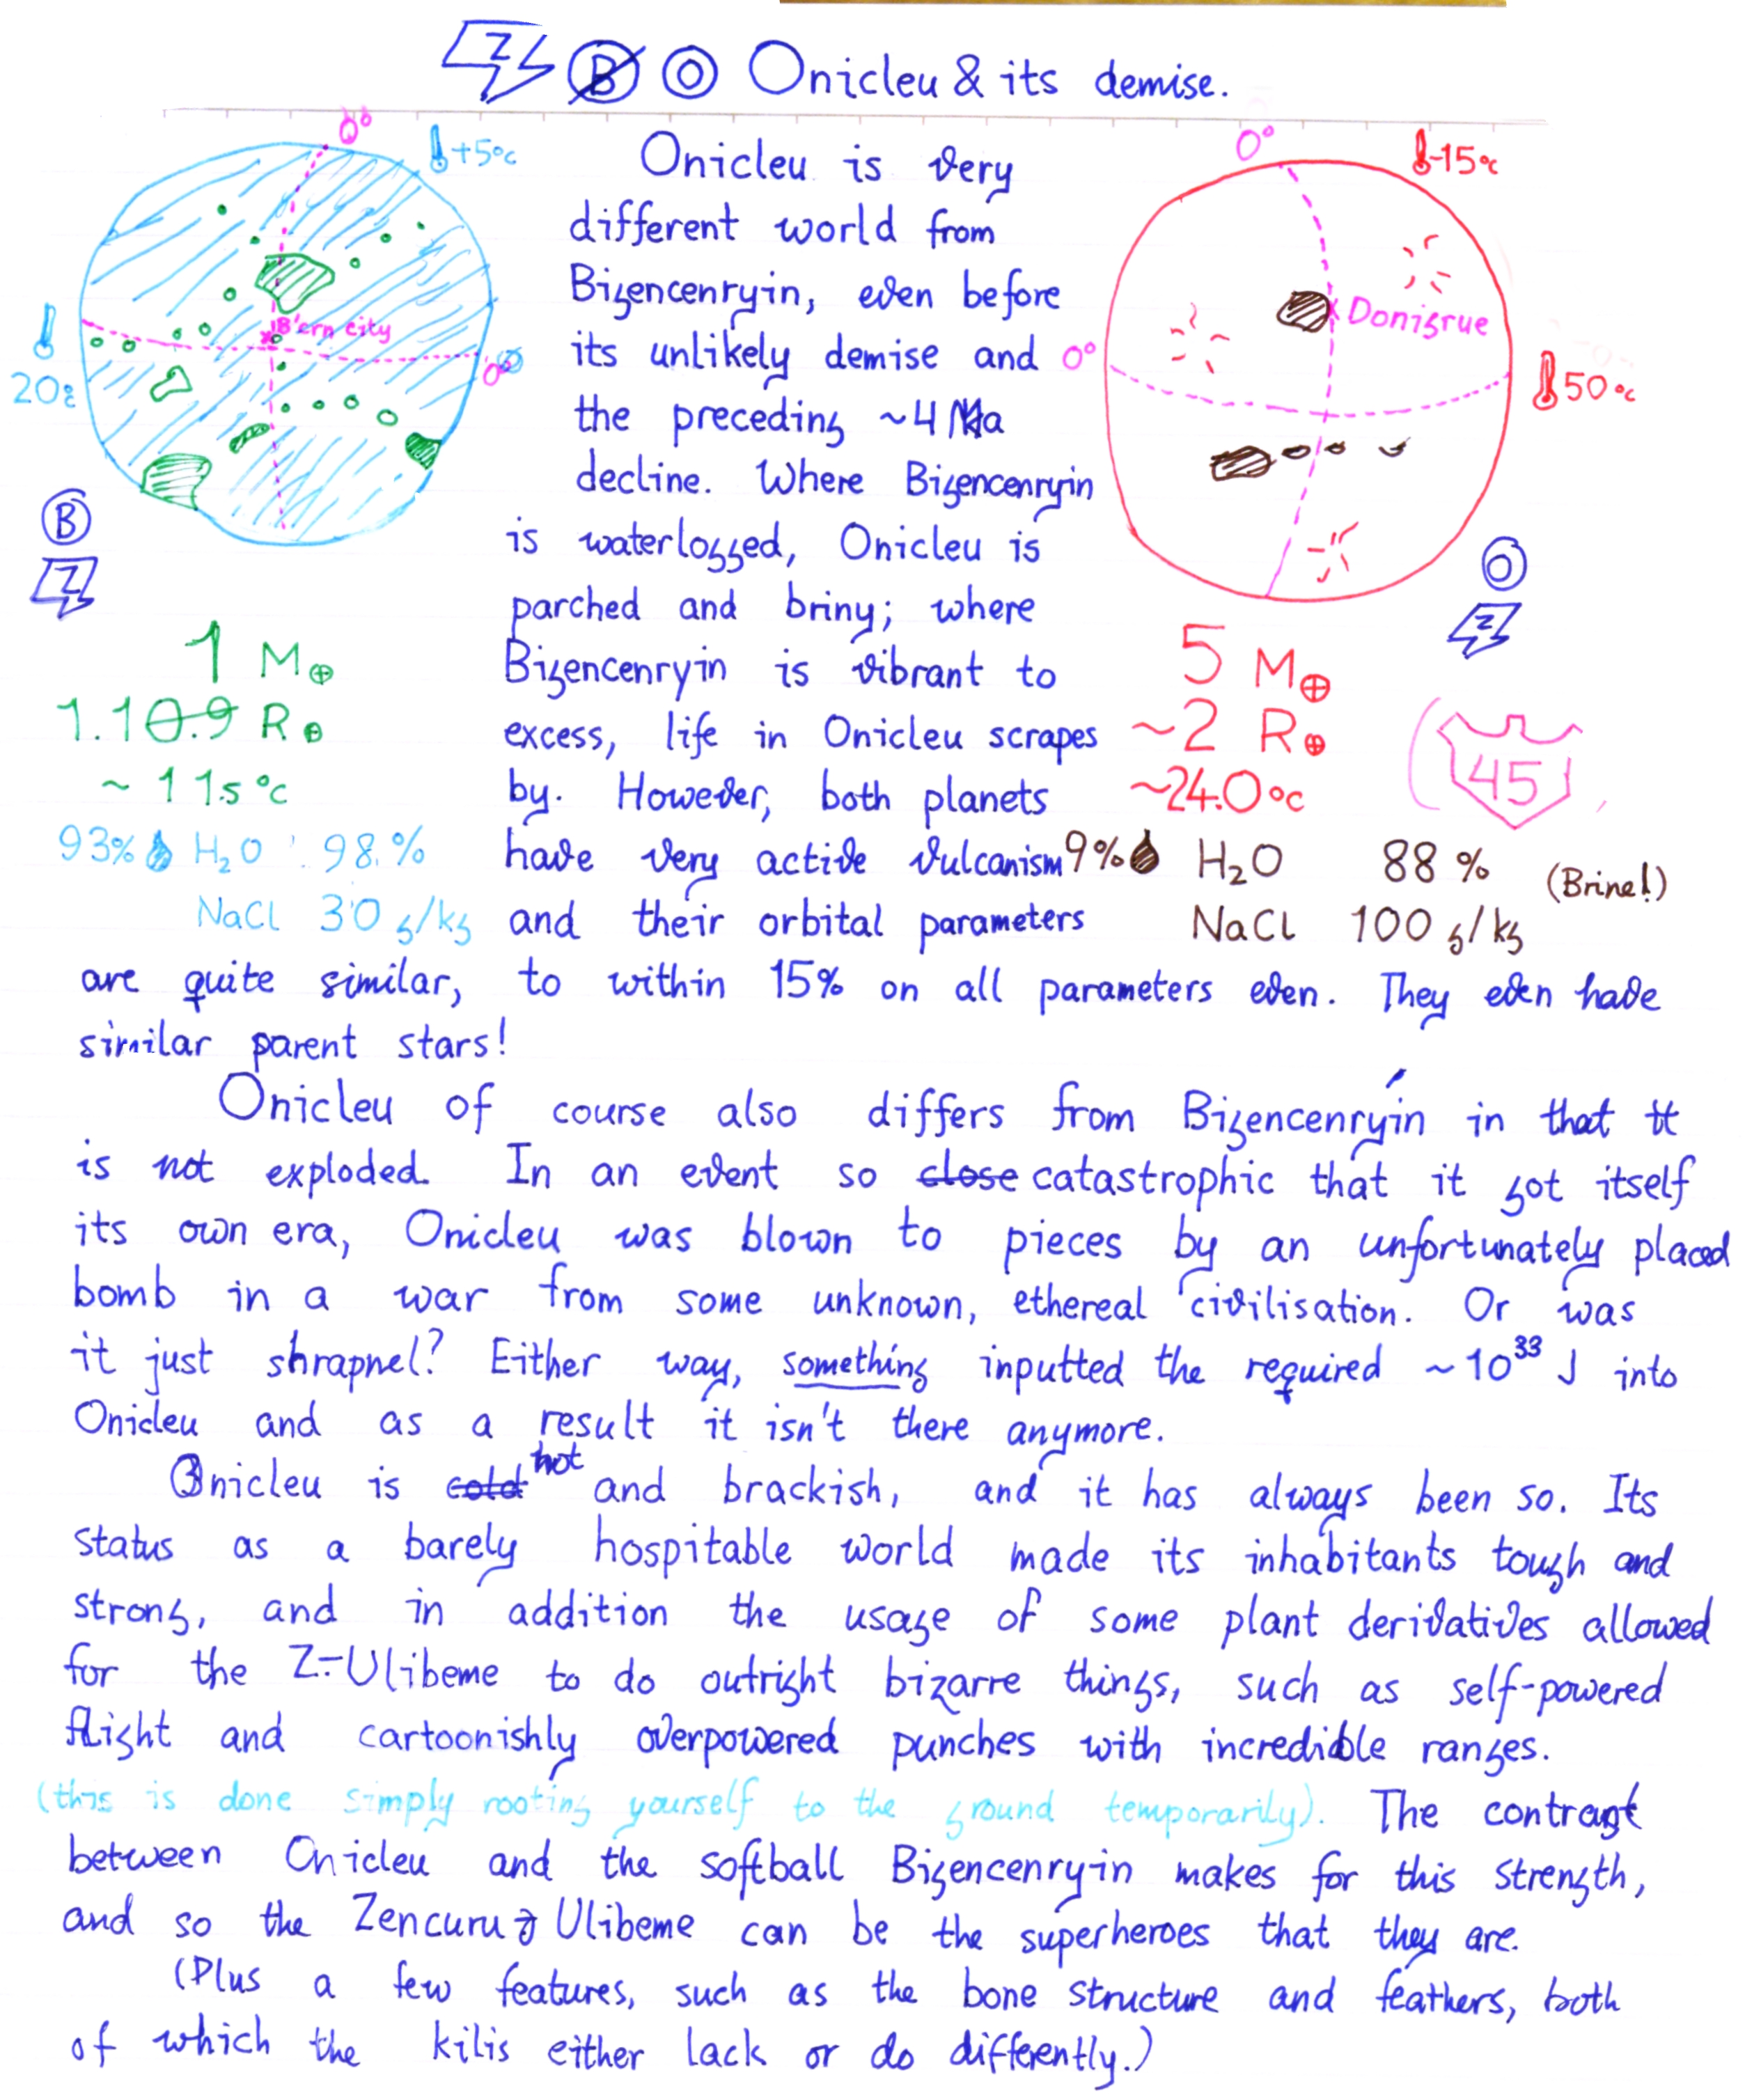 Z B O Onicleu & its demise.
0° +5°C
20°C
B'ern city
0°
B
Z
1 M⊕
1.1 0.9 R⊕
~ 11.5 °C
93% H₂O 98.%
NaCl 30 g/kg
Onicleu is very
different world from
Bigencenryin, even before
its unlikely demise and
the preceding ~4 Ma
decline. Where Bigencenryin
is waterlogged, Onicleu is
parched and briny; where
Bigencenryin is vibrant to
excess, life in Onicleu scrapes
by. However, both planets
have very active vulcanism
and their orbital parameters
0° -15°C
Donigrue
0°
50°C
O
Z
5 M⊕
~2 R⊕
~24.0 °C
45
9% H₂O 88 % (Brine!)
NaCl 100 g/kg
are quite similar, to within 15% on all parameters even. They even have
similar parent stars!
Onicleu of course also differs from Bigencenryin in that it
is not exploded. In an event so close catastrophic that it got itself
its own era, Onicleu was blown to pieces by an unfortunately placed
bomb in a war from some unknown, ethereal civilisation. Or was
it just shrapnel? Either way, something inputted the required ~10³³ J into
Onicleu and as a result it isn't there anymore.
Onicleu is cold hot and brackish, and it has always been so. Its
status as a barely hospitable world made its inhabitants tough and
strong, and in addition the usage of some plant derivatives allowed
for the Z.-Ulibeme to do outright bizarre things, such as self-powered
flight and cartoonishly overpowered punches with incredible ranges.
(this is done simply rooting yourself to the ground temporarily). The contrast
between Onicleu and the softball Bigencenryin makes for this strength,
and so the Zencuru Ulibeme can be the superheroes that they are.
(Plus a few features, such as the bone structure and feathers, both
of which the kilis either lack or do differently.)